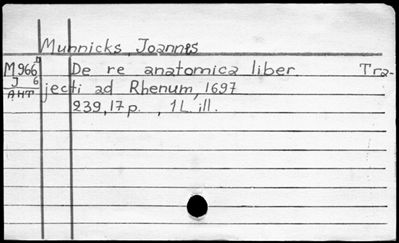 Munnicks, Joannes
M966 De re anatomica liber. Tra-
J 6
AHT jecti ad Rhenum, 1697
239, 17 p., 1 L. ill.